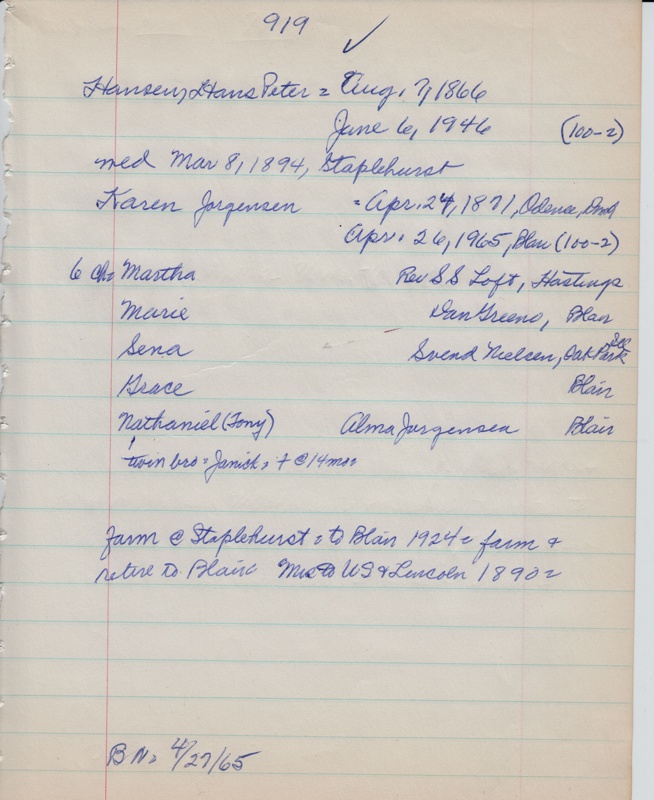 919 ✓
Hansen, Hans Peter = Aug. 7, 1866
June 6, 1946 (100-2)
med Mar 8, 1894, Staplehurst
Karen Jorgensen = Apr. 24, 1871, Odence, Dmk
Apr. 26, 1965, Blair (100-2)
6 ch = Martha Rev S S Loft, Hastings
Marie Dan Greeno, Blair
Sena Svend Nielsen, Oak Park
Grace Blair
Nathaniel (Tony) Alma Jorgensen Blair
twin bro = Janick = + @ 14 mos
farm @ Staplehurst = to Blair 1924 = farm +
retire to Blair Mrs to US & Lincoln 1890 =
BN = 4/27/65